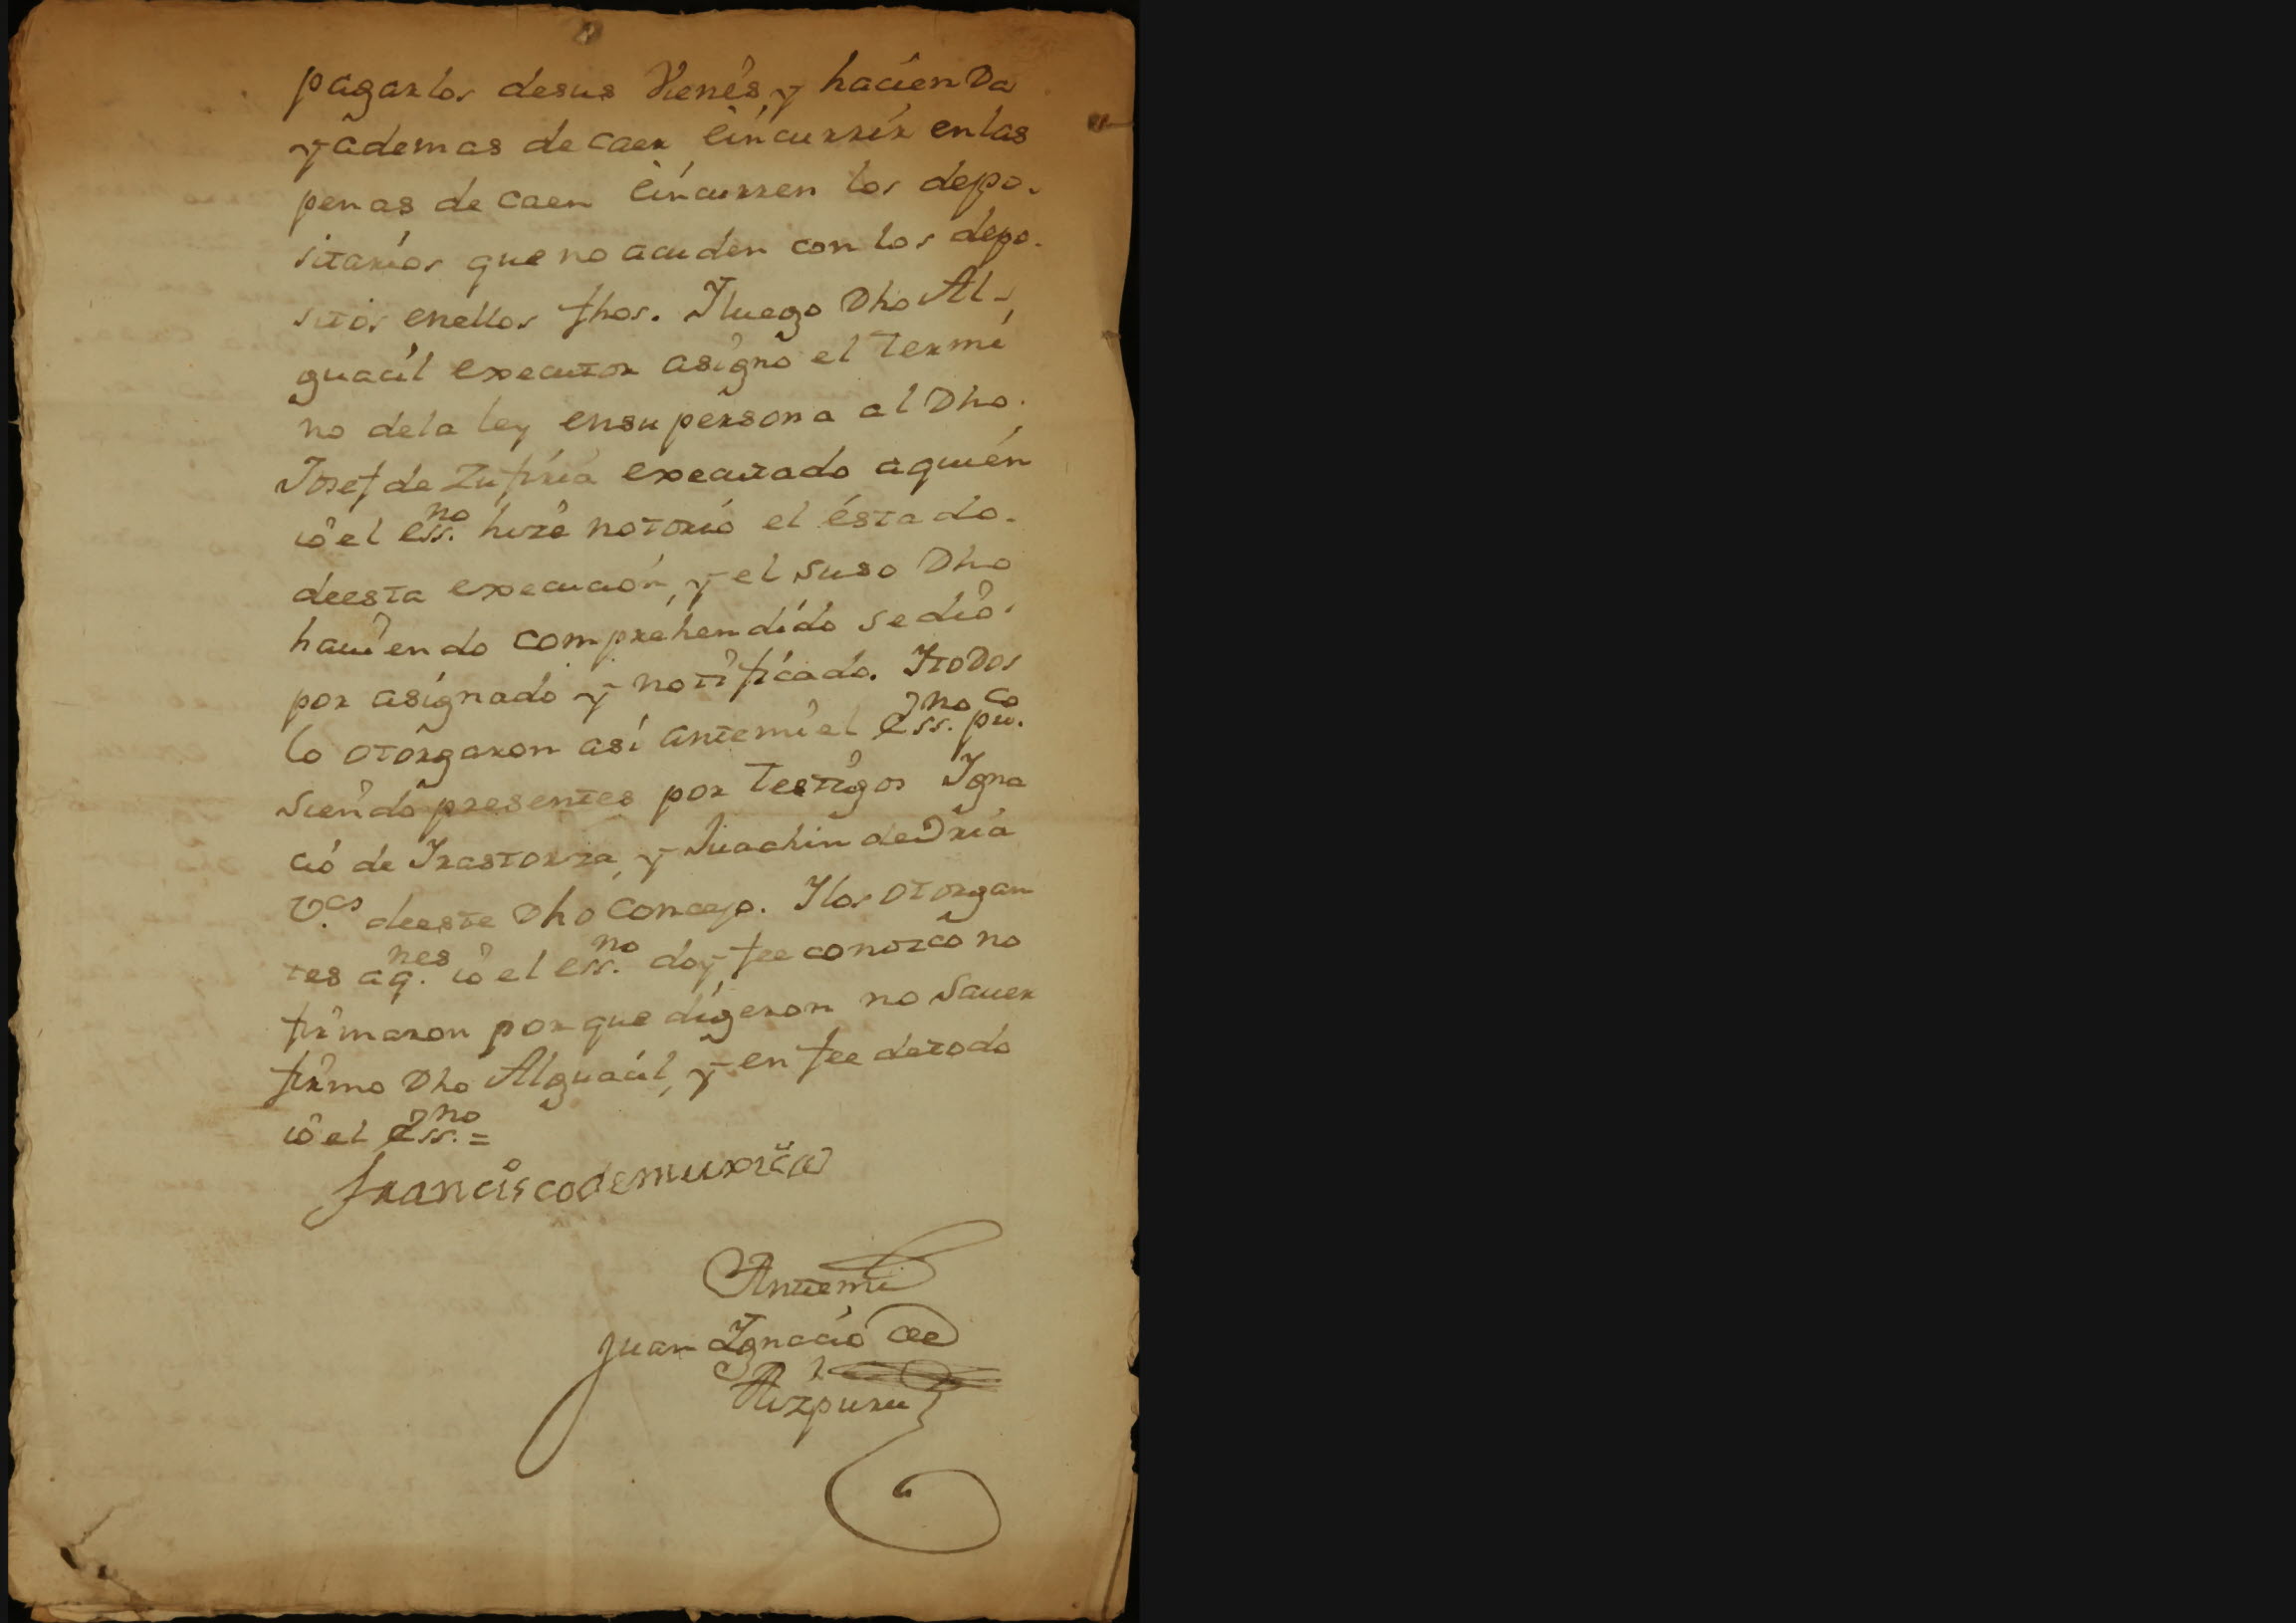 pagarlos desus Vienes, y hacienda
y ademas de caer eincurrir enlas
penas de caen eincurren los depo-
sitarios que no acuden con los depo-
sitos enellos fhos. Yluego Dho Al-
guacil executor asigno el termi
no dela ley ensu persona al Dho.
Josef de Zufiria executado aquien
io el essno. hize notorio el estado.
deesta execucion, y el suso Dho
haviendo comprehendido se dio
por asignado y notificado. Ytodos
lo otorgaron asi antemi el Essno. puco.
Siendo presentes por testigos Igna
cio de Irastorza, y Juachin de Vria
Vcs. deeste Dho Concejo. Ylos otorgan
tes aqnes. io el essno. doy fee conozco no
firmaron por que digeron no saver
firmo Dho Alguacil, y en fee detodo
io el Essno. =
franciscodemuxica
Antemi
Juan Ignacio de
Aizpuru